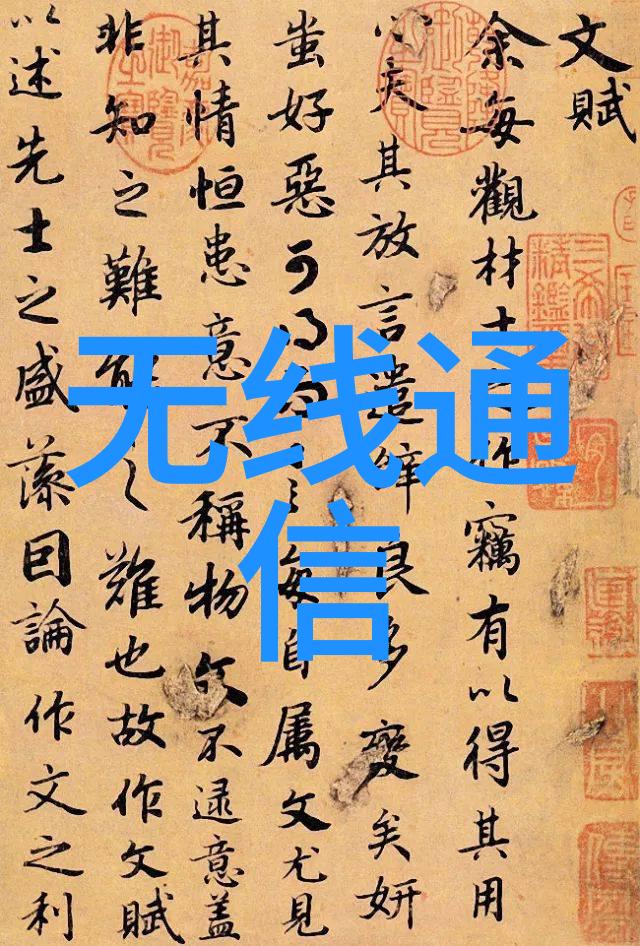 文賦
余每觀材士之作竊有以得其用
心夫其放言遣辭良多變矣妍
蚩好惡可得而言每自屬文尤見
其情恒患意不稱物文不逮意蓋
非知之難能之難也故作文賦
以述先士之盛藻因論作文之利
无线通
信